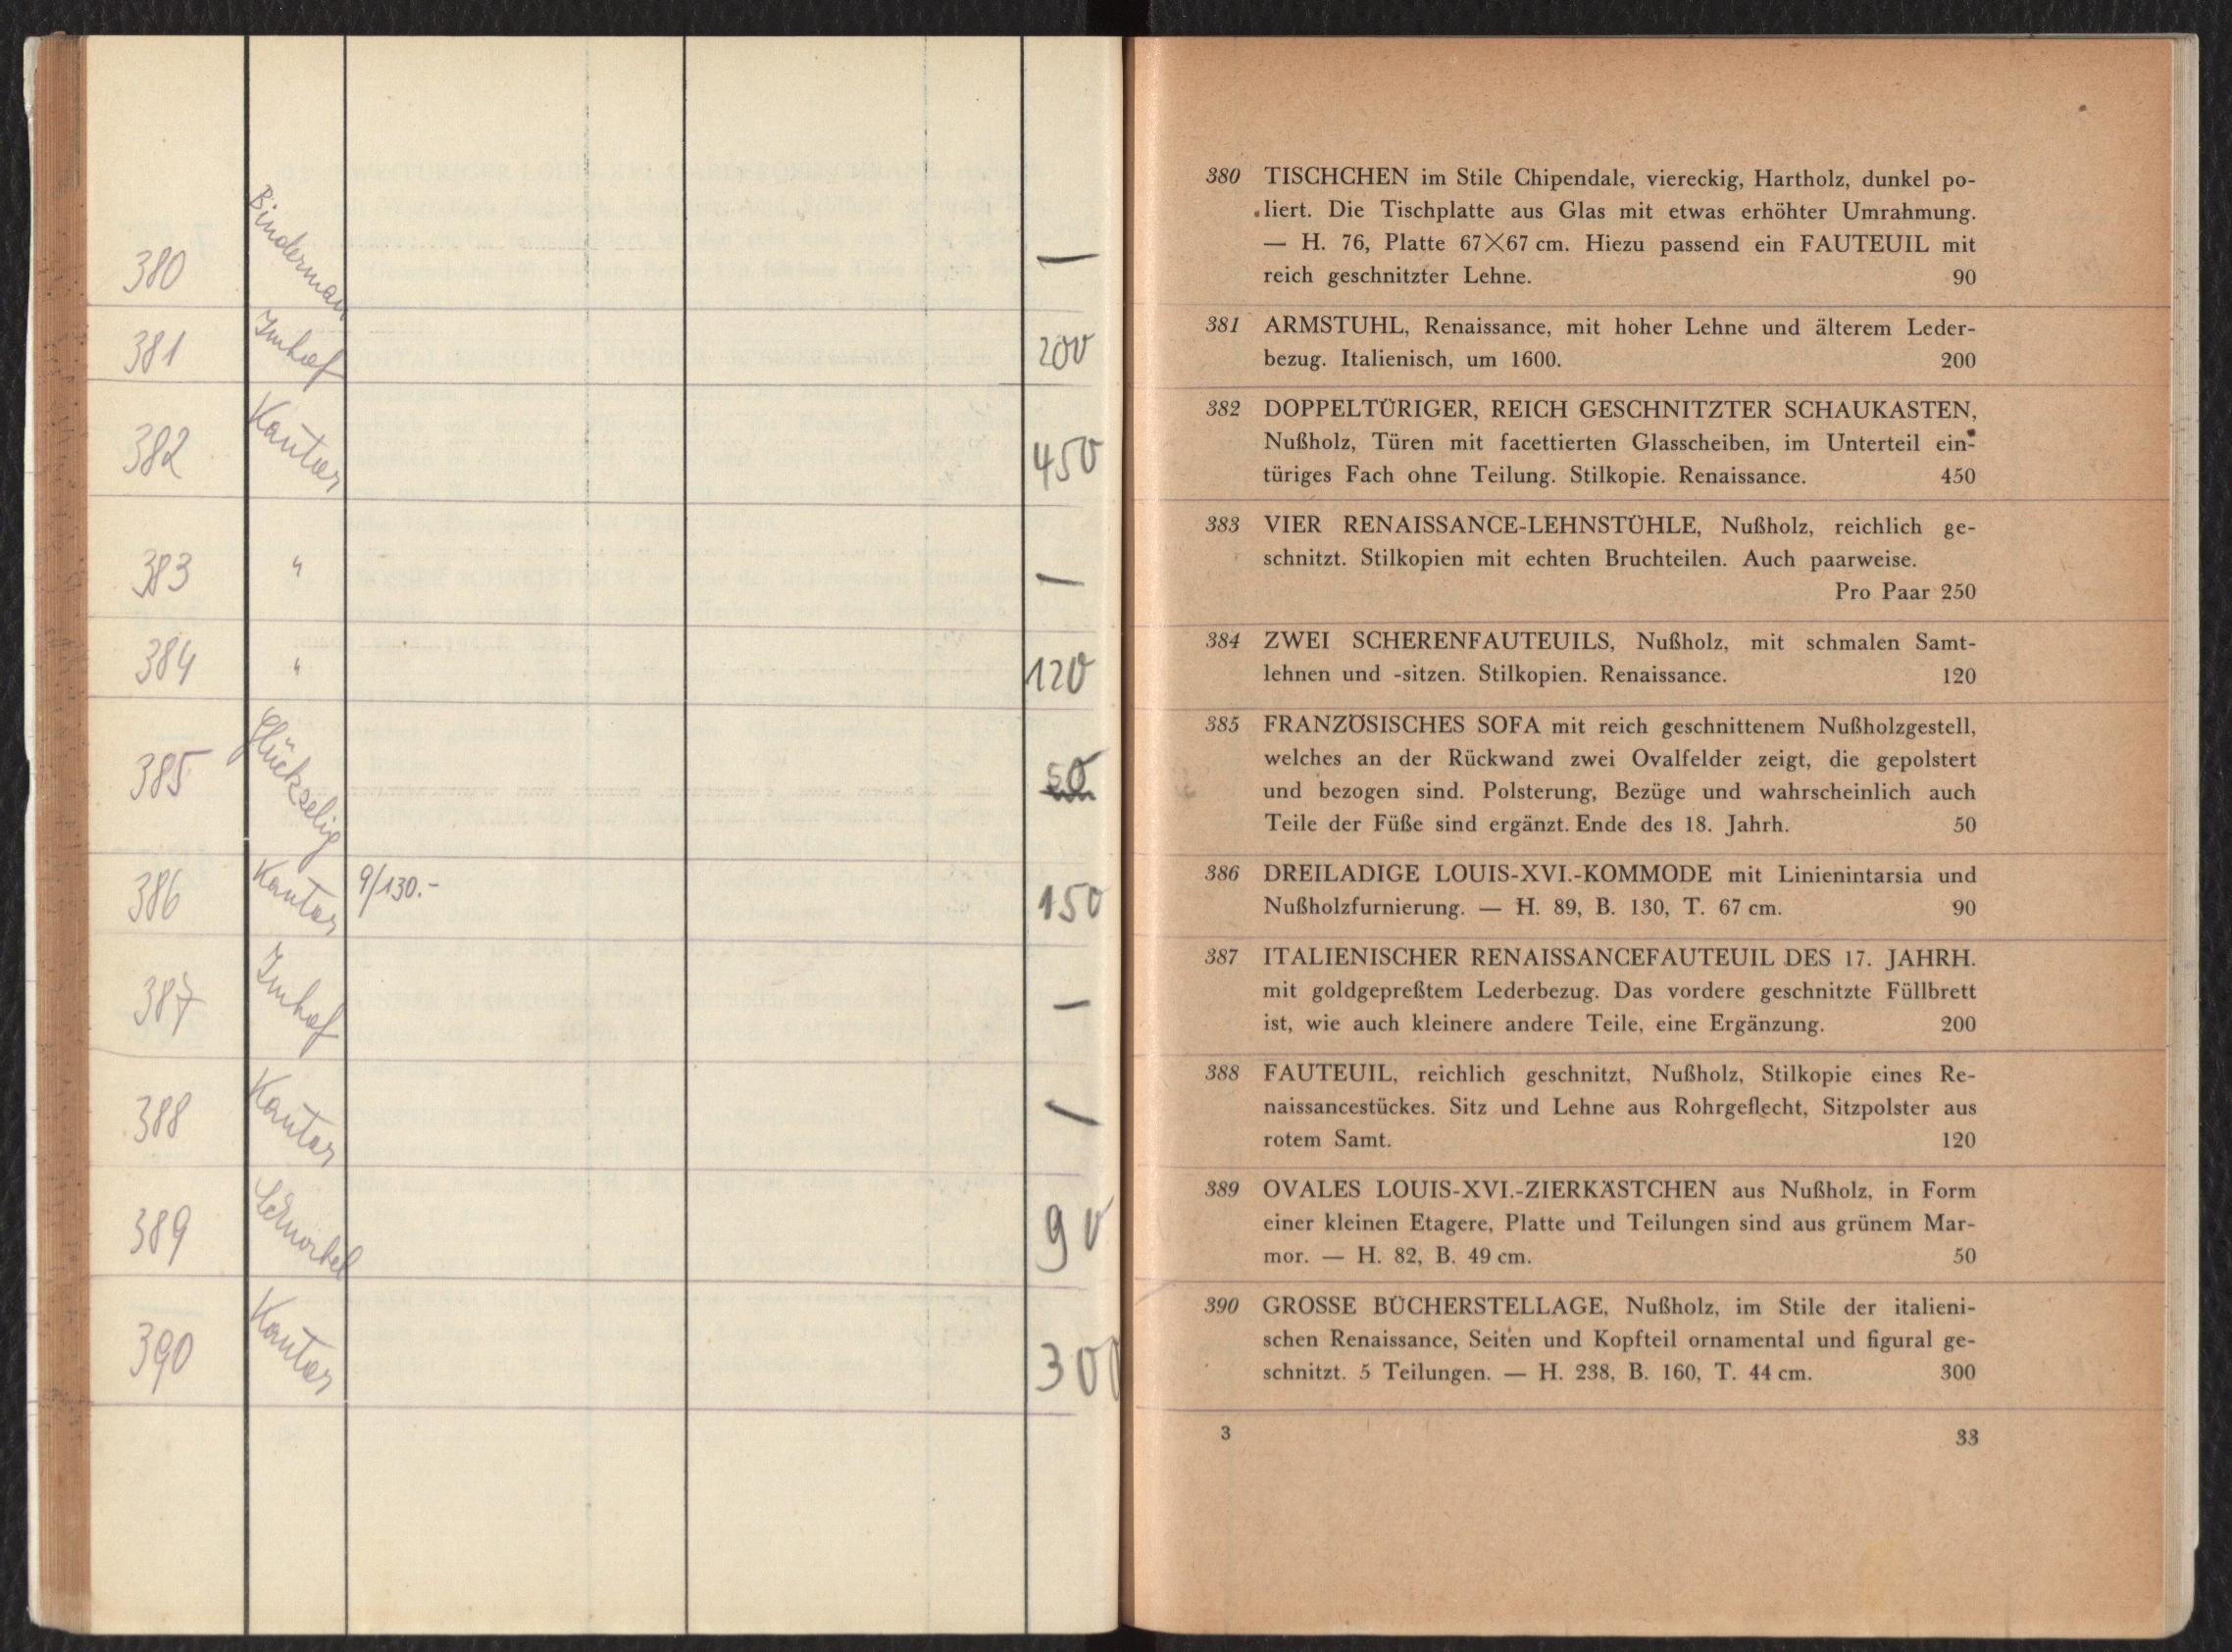 380 Binderman —
381 Imhof 200
382 Kantor 450
383 " —
384 " 120
385 Glückselig 50
386 Kantor 9/130.- 150
387 Imhof —
388 Kantor —
389 90
390 Kantor 300
380 TISCHCHEN im Stile Chipendale, viereckig, Hartholz, dunkel po-
liert. Die Tischplatte aus Glas mit etwas erhöhter Umrahmung.
— H. 76, Platte 67×67 cm. Hiezu passend ein FAUTEUIL mit
reich geschnitzter Lehne. 90
381 ARMSTUHL, Renaissance, mit hoher Lehne und älterem Leder-
bezug. Italienisch, um 1600. 200
382 DOPPELTÜRIGER, REICH GESCHNITZTER SCHAUKASTEN,
Nußholz, Türen mit facettierten Glasscheiben, im Unterteil ein-
türiges Fach ohne Teilung. Stilkopie. Renaissance. 450
383 VIER RENAISSANCE-LEHNSTÜHLE, Nußholz, reichlich ge-
schnitzt. Stilkopien mit echten Bruchteilen. Auch paarweise.
Pro Paar 250
384 ZWEI SCHERENFAUTEUILS, Nußholz, mit schmalen Samt-
lehnen und -sitzen. Stilkopien. Renaissance. 120
385 FRANZÖSISCHES SOFA mit reich geschnittenem Nußholzgestell,
welches an der Rückwand zwei Ovalfelder zeigt, die gepolstert
und bezogen sind. Polsterung, Bezüge und wahrscheinlich auch
Teile der Füße sind ergänzt. Ende des 18. Jahrh. 50
386 DREILADIGE LOUIS-XVI.-KOMMODE mit Linienintarsia und
Nußholzfurnierung. — H. 89, B. 130, T. 67 cm. 90
387 ITALIENISCHER RENAISSANCEFAUTEUIL DES 17. JAHRH.
mit goldgepreßtem Lederbezug. Das vordere geschnitzte Füllbrett
ist, wie auch kleinere andere Teile, eine Ergänzung. 200
388 FAUTEUIL, reichlich geschnitzt, Nußholz, Stilkopie eines Re-
naissancestückes. Sitz und Lehne aus Rohrgeflecht, Sitzpolster aus
rotem Samt. 120
389 OVALES LOUIS-XVI.-ZIERKÄSTCHEN aus Nußholz, in Form
einer kleinen Etagere, Platte und Teilungen sind aus grünem Mar-
mor. — H. 82, B. 49 cm. 50
390 GROSSE BÜCHERSTELLAGE, Nußholz, im Stile der italieni-
schen Renaissance, Seiten und Kopfteil ornamental und figural ge-
schnitzt. 5 Teilungen. — H. 238, B. 160, T. 44 cm. 300
3 33